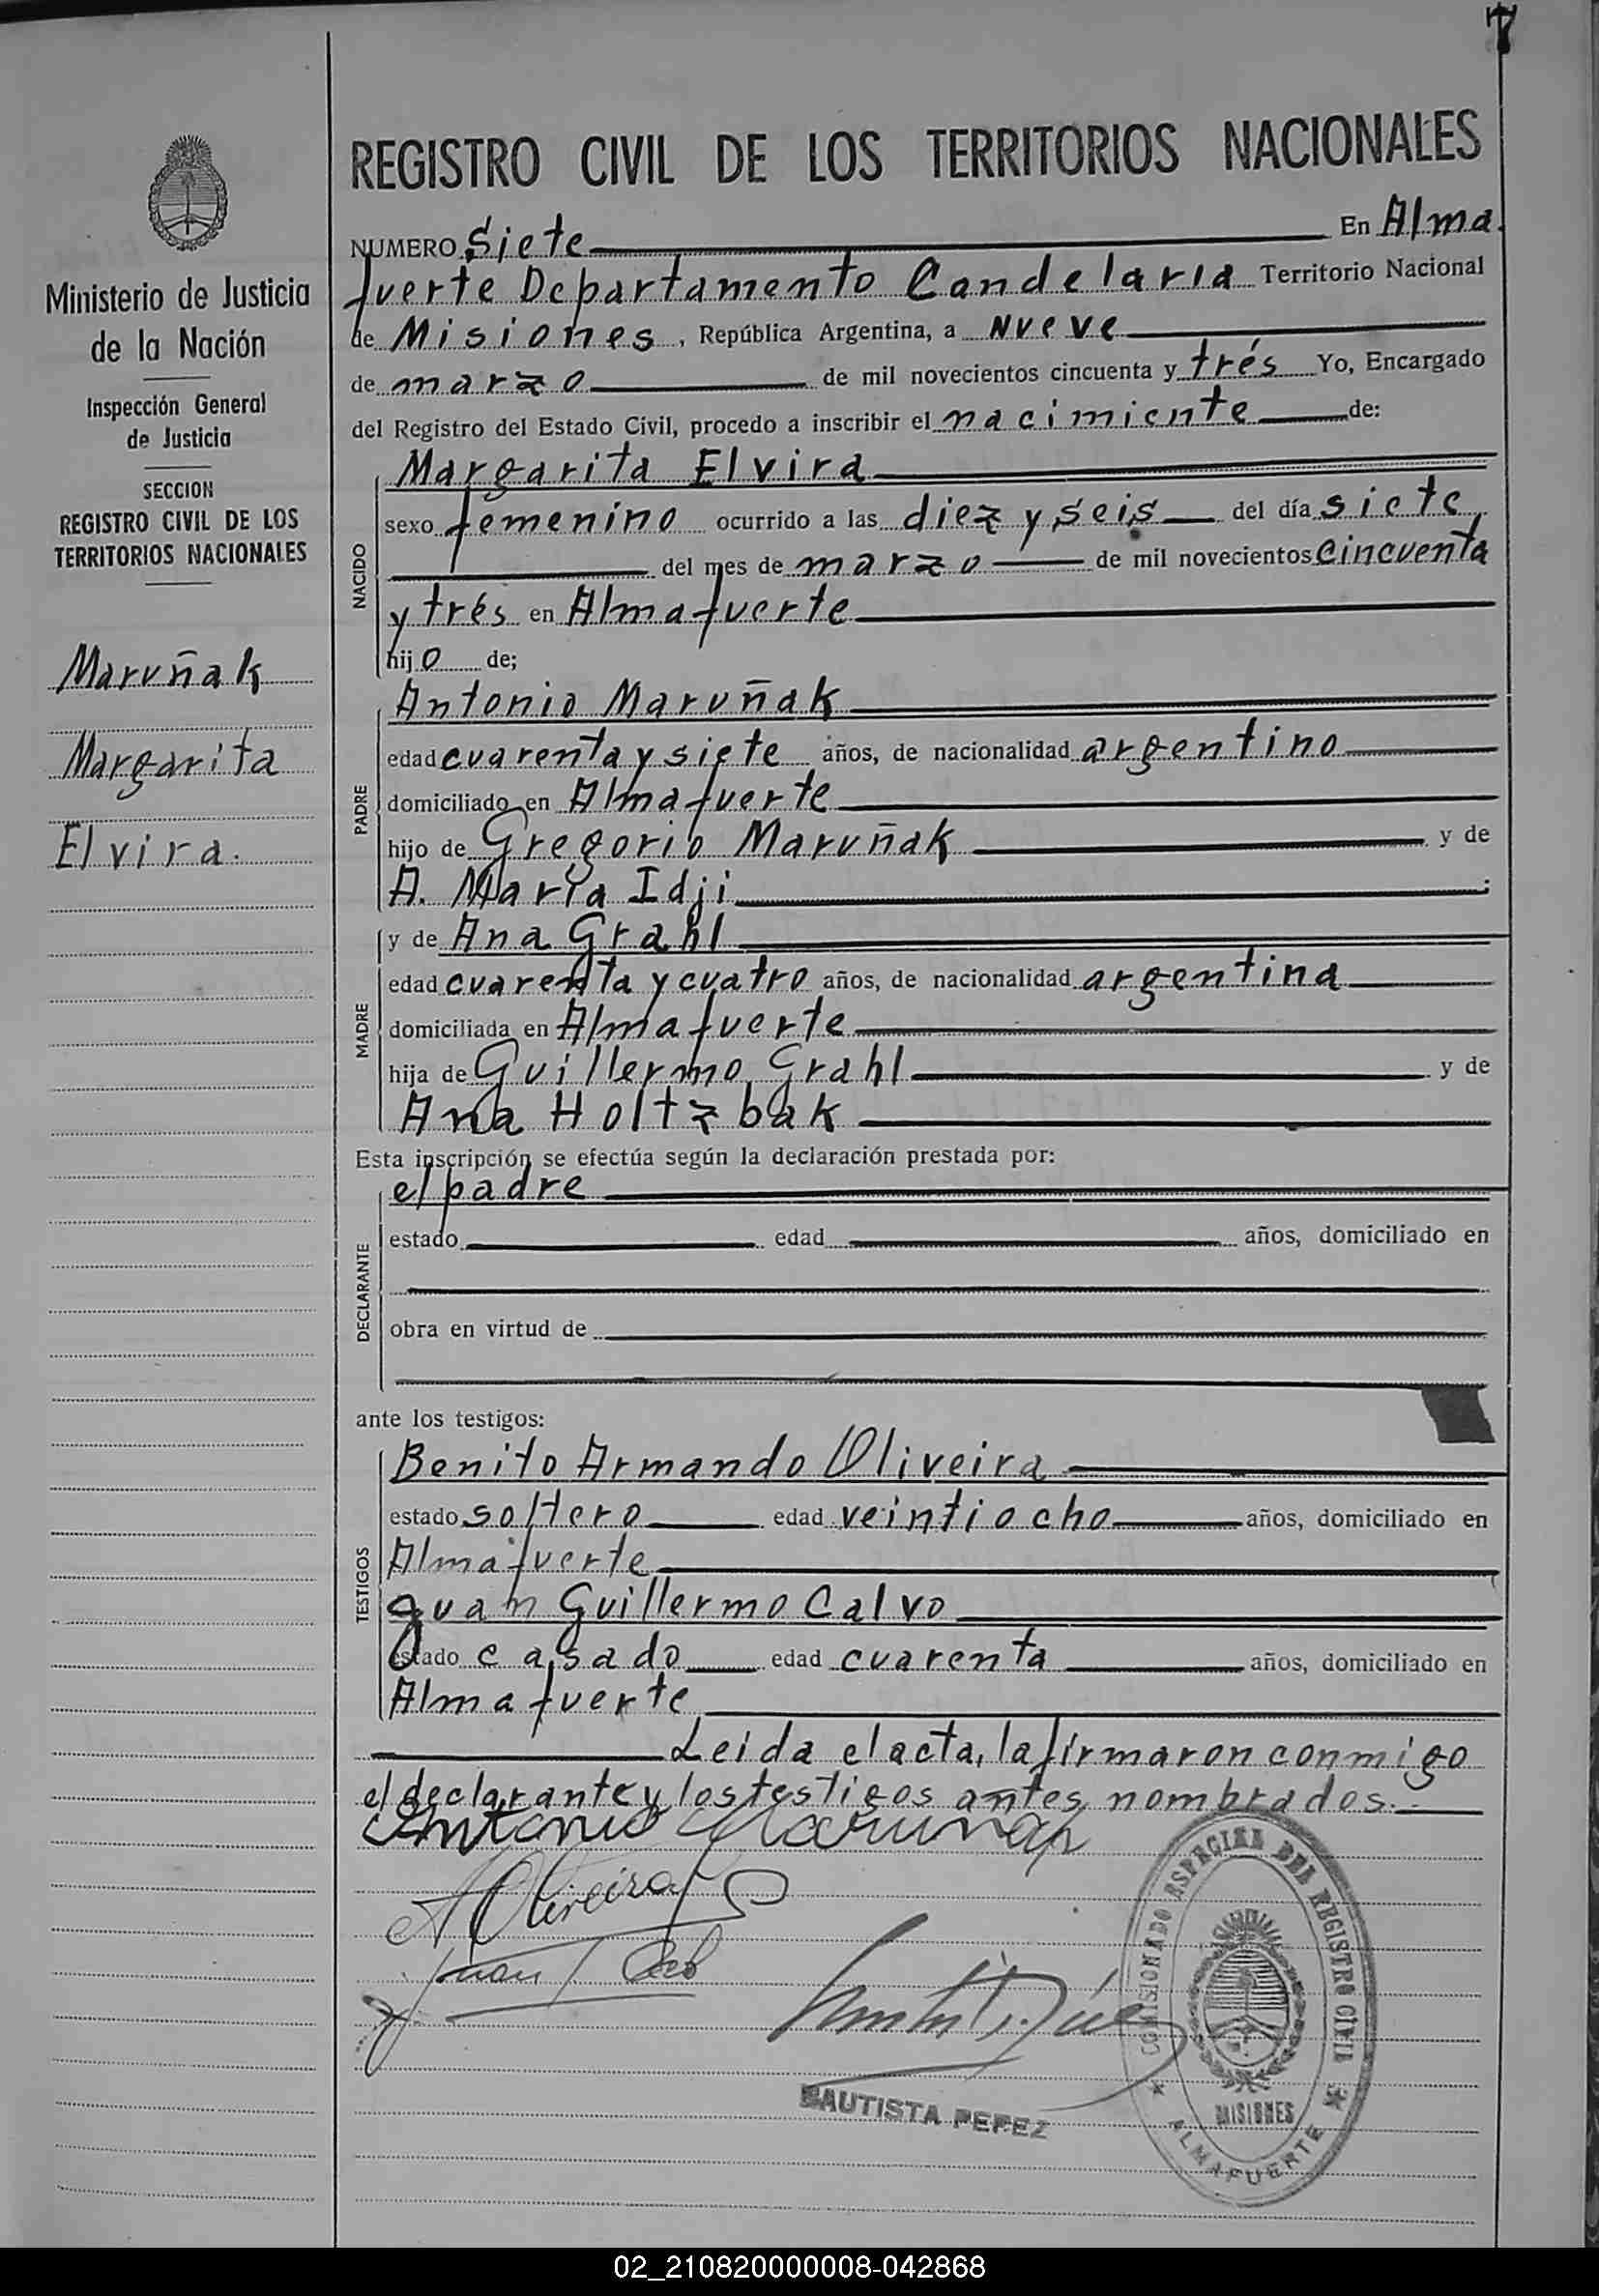 7
REGISTRO CIVIL DE LOS TERRITORIOS NACIONALES
Ministerio de Justicia
de la Nación
Inspección General
de Justicia
SECCION
REGISTRO CIVIL DE LOS
TERRITORIOS NACIONALES
Maruñak
Margarita
Elvira.
NUMERO Siete En Alma
fuerte Departamento Candelaria Territorio Nacional
de Misiones, República Argentina, a nueve
de marzo de mil novecientos cincuenta y trés Yo, Encargado
del Registro del Estado Civil, procedo a inscribir el nacimiente de:
NACIDO
Margarita Elvira
sexo femenino ocurrido a las diez y seis del día siete
del mes de marzo de mil novecientos cincuenta
y trés en Almafuerte
hijo de;
PADRE
Antonio Maruñak
edad cuarenta y siete años, de nacionalidad argentino
domiciliado en Almafuerte
hijo de Gregorio Maruñak y de
A. María Idji ;
MADRE
y de Ana Grahl
edad cuarenta y cuatro años, de nacionalidad argentina
domiciliada en Almafuerte
hija de Guillermo Grahl y de
Ana Holtzbak
Esta inscripción se efectúa según la declaración prestada por:
DECLARANTE
el padre
estado edad años, domiciliado en
obra en virtud de
ante los testigos:
TESTIGOS
Benito Armando Oliveira
estado soltero edad veintiocho años, domiciliado en
Almafuerte
Juan Guillermo Calvo
estado casado edad cuarenta años, domiciliado en
Almafuerte
Leida el acta, la firmaron conmigo
el declarante y los testigos antes nombrados.
Antonio Maruñak
A Oliveira
Juan
BAUTISTA PEREZ
COMISIONADO ESPECIAL DEL REGISTRO CIVIL
MISIONES
ALMAFUERTE
02_210820000008-042868